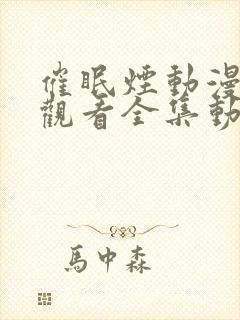 催眠煙動漫
觀看全集動
馬中森